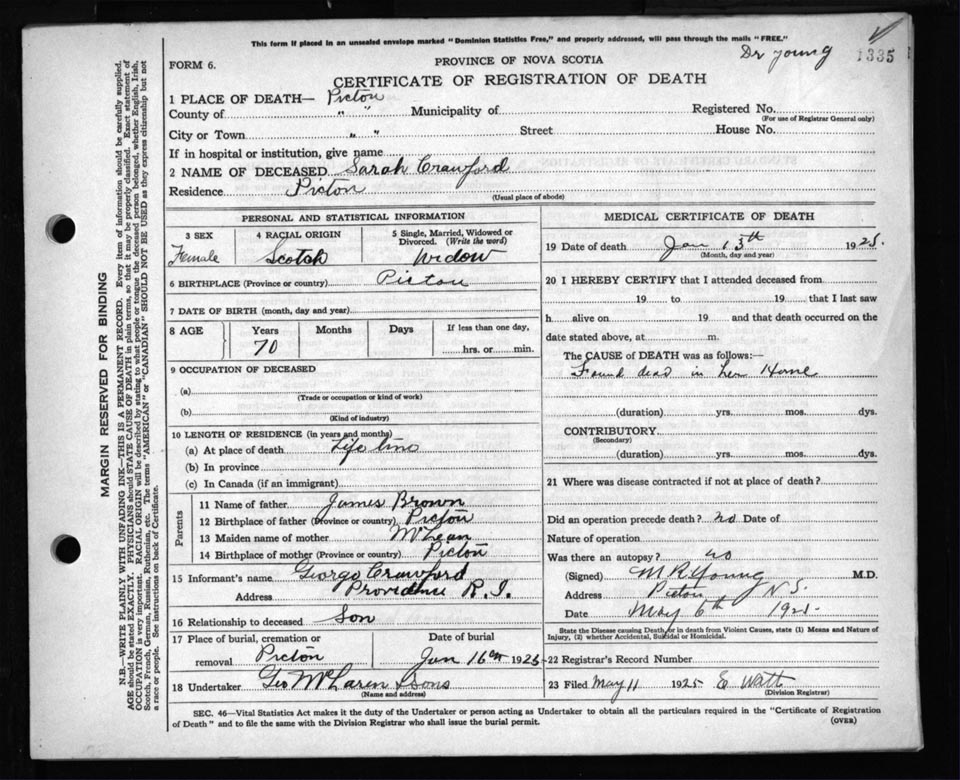 This form if placed in an unsealed envelope marked "Dominion Statistics Free," and properly addressed, will pass through the mails "FREE."
Dr Young
1335
FORM 6.
PROVINCE OF NOVA SCOTIA
CERTIFICATE OF REGISTRATION OF DEATH
1 PLACE OF DEATH— Pictou
County of " " Municipality of Registered No.
(For use of Registrar General only)
City or Town " " Street House No.
If in hospital or institution, give name
2 NAME OF DECEASED Sarah Crawford
Residence Pictou
(Usual place of abode)
PERSONAL AND STATISTICAL INFORMATION
3 SEX 4 RACIAL ORIGIN 5 Single, Married, Widowed or Divorced. (Write the word)
Female Scotch Widow
6 BIRTHPLACE (Province or country) Pictou
7 DATE OF BIRTH (month, day and year)
8 AGE Years Months Days If less than one day,
70 hrs. or min.
9 OCCUPATION OF DECEASED
(a)
(Trade or occupation or kind of work)
(b)
(Kind of industry)
10 LENGTH OF RESIDENCE (in years and months)
(a) At place of death Life time
(b) In province
(c) In Canada (if an immigrant)
Parents
11 Name of father James Brown
12 Birthplace of father (Province or country) Pictou
13 Maiden name of mother McLean
14 Birthplace of mother (Province or country) Pictou
15 Informant's name George Crawford
Address Providence R.I.
16 Relationship to deceased Son
17 Place of burial, cremation or Date of burial
removal Pictou Jan 16th 1925
18 Undertaker Geo McLaren & Sons
(Name and address)
MEDICAL CERTIFICATE OF DEATH
19 Date of death Jan 13th 1925.
(Month, day and year)
20 I HEREBY CERTIFY that I attended deceased from
19 to 19 that I last saw
h alive on 19 and that death occurred on the
date stated above, at m.
The CAUSE of DEATH was as follows:—
Found dead in her Home
(duration) yrs. mos. dys.
CONTRIBUTORY
(Secondary)
(duration) yrs. mos. dys.
21 Where was disease contracted if not at place of death?
Did an operation precede death? no Date of
Nature of operation
Was there an autopsy? no
(Signed) M R Young M.D.
Address Pictou N.S.
Date May 6th 192
State the Disease causing Death, or in death from Violent Causes, state (1) Means and Nature of
Injury, (2) whether Accidental, Suicidal or Homicidal.
22 Registrar's Record Number
23 Filed May 11 1925 E Watt
(Division Registrar)
SEC. 46—Vital Statistics Act makes it the duty of the Undertaker or person acting as Undertaker to obtain all the particulars required in the "Certificate of Registration
of Death" and to file the same with the Division Registrar who shall issue the burial permit.
(OVER)
MARGIN RESERVED FOR BINDING
N.B.—WRITE PLAINLY WITH UNFADING INK—THIS IS A PERMANENT RECORD. Every item of information should be carefully supplied.
AGE should be stated EXACTLY. PHYSICIANS should STATE CAUSE OF DEATH in plain terms, so that it may be properly classified. Exact statement of
OCCUPATION is very important. RACIAL ORIGIN will be described by stating to what people or tongue the deceased person belonged, whether English, Irish,
Scotch, French, German, Russian, Ruthenian, etc. The terms "AMERICAN" or "CANADIAN" SHOULD NOT BE USED as they express citizenship but not
a race or people. See instructions on back of Certificate.